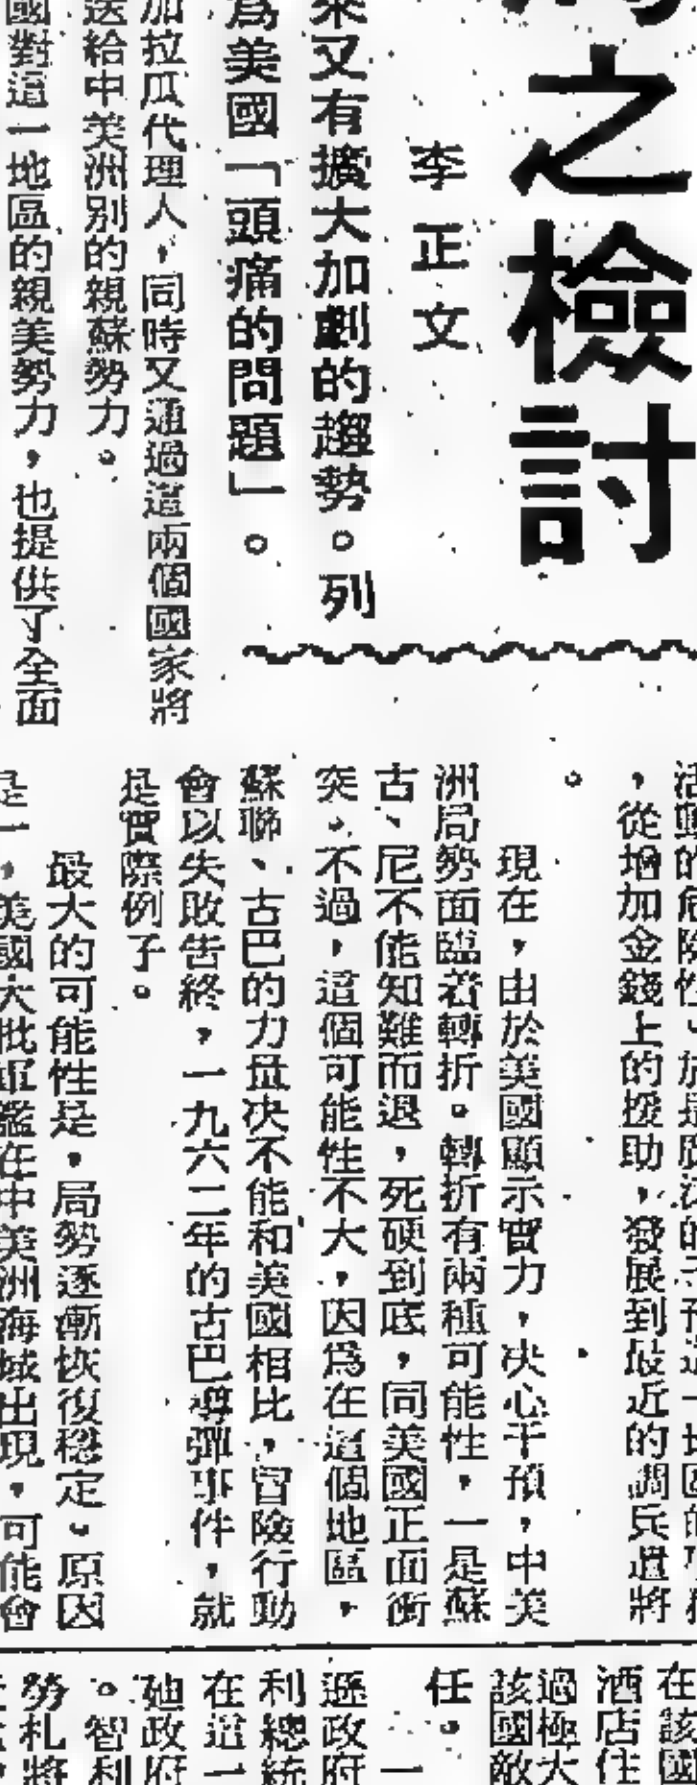 之檢討
李正文
來又有擴大加劇的趨勢。列
為美國「頭痛的問題」。
加拉瓜代理人，同時又通過這兩個國家將
送給中美洲別的親蘇勢力。
國對這一地區的親美勢力，也提供了全面
，從增加金錢上的援助，發展到最近的調兵遣將
。
現在，由於美國顯示實力，決心干預，中美
洲局勢面臨着轉折。轉折有兩種可能性，一是蘇
古、尼不能知難而退，死硬到底，同美國正面衝
突。不過，這個可能性不大，因爲在這個地區，
蘇聯、古巴的力量決不能和美國相比，冒險行動
會以失敗告終，一九六二年的古巴導彈事件，就
是實際例子。
最大的可能性是，局勢逐漸恢復穩定。原因
是一，美國大批軍艦在中美洲海域出現，可能會
在該國
酒店住
過極大
該國敵
任。
一
遜政府
利總統
在這一
廸政府
。智利
勞札將